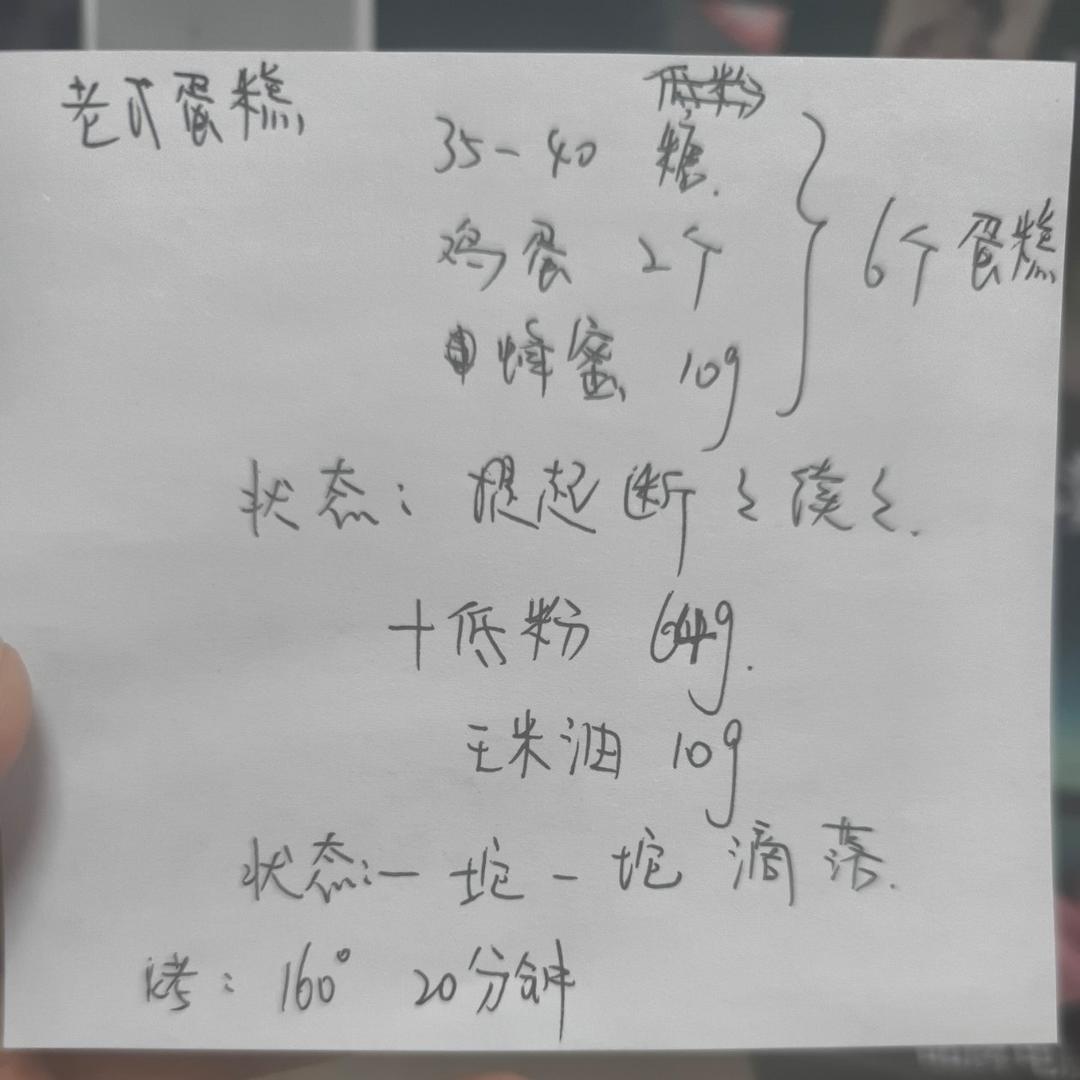 老式蛋糕
35-40 糖
鸡蛋 2个
蜂蜜 10g
6个蛋糕
状态：提起断〻续〻.
+低粉 64g.
玉米油 10g
状态:一坨一坨滴落.
烤：160° 20分钟